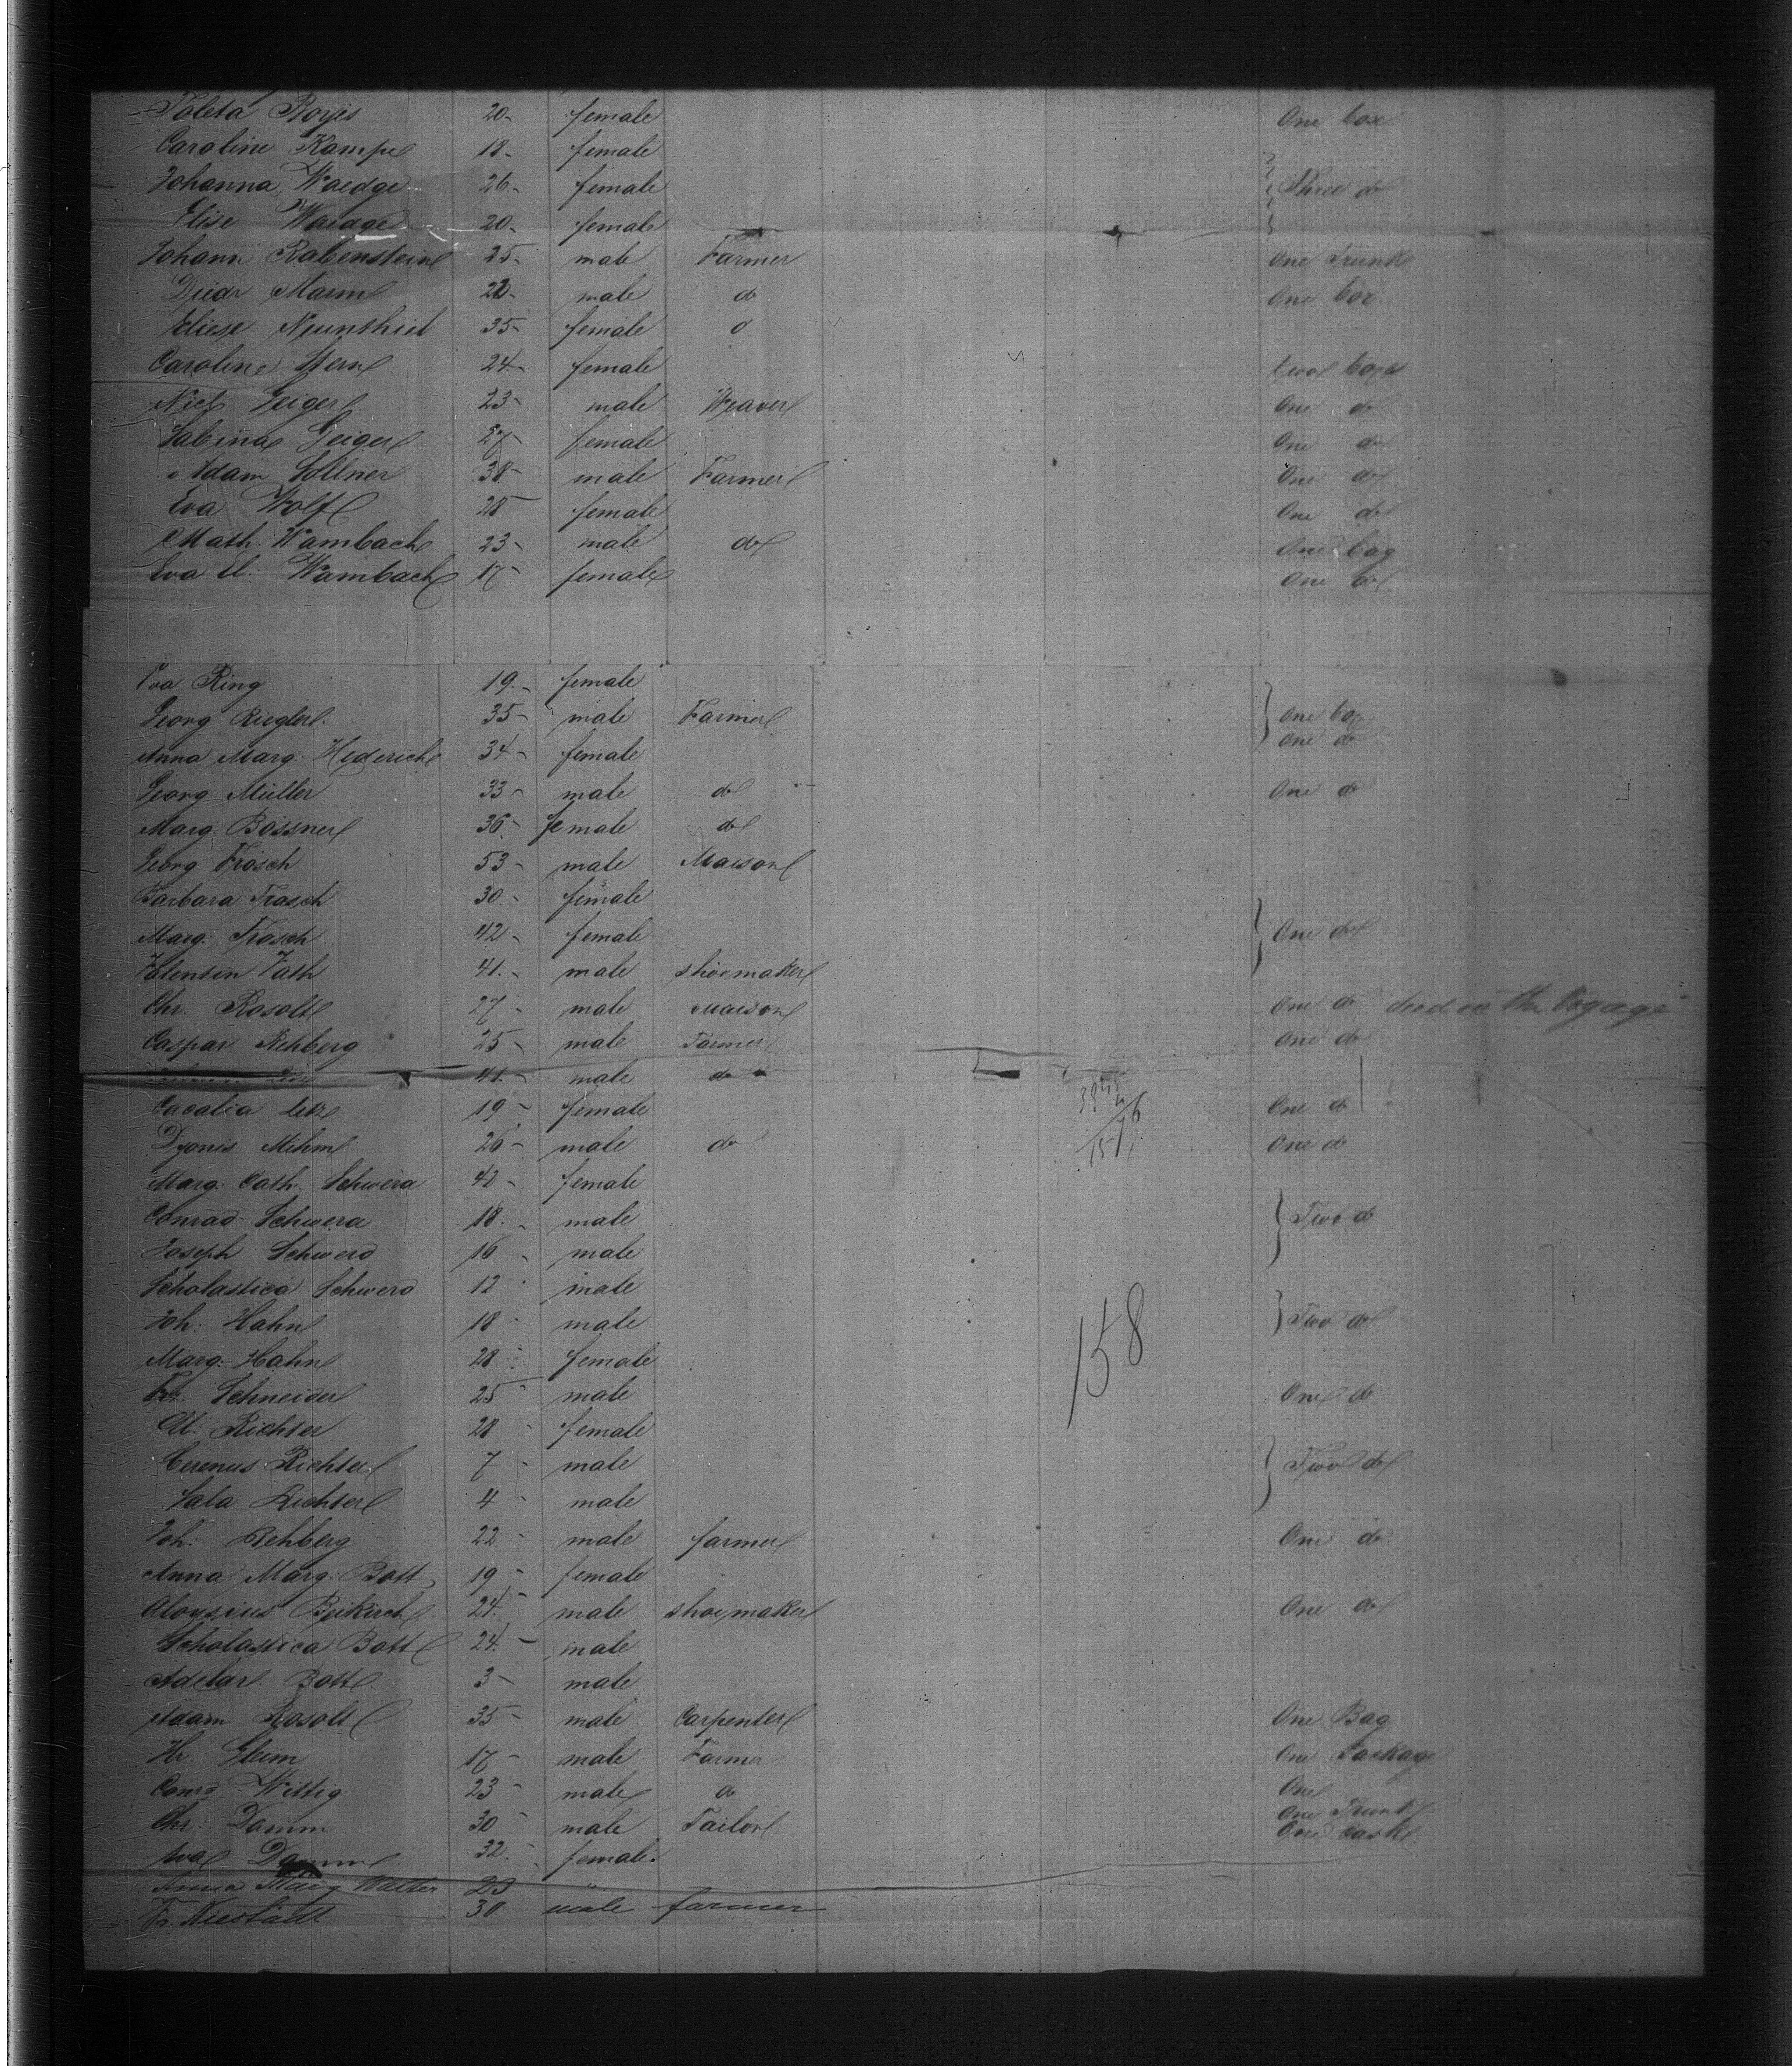 Royis 20- female One box
Caroline Kampe 18- female
Johanna Waedge 26- female Three do
Elise Waedge 20- female
Johann Rabenstein 25- male Farmer One Trunk
Diedr Mamm 22- male do One box
Eliese 35- female
Caroline Stern 24- female two boxes
Geiger 23- male Weaver One do
Sabina Geiger 27- female One do
Adam Sollner 38- male Farmer One do
Eva Wolf 28 female One do
Math. Wambach 23- male do One bag
Eva El. Wambach 17- female One do
Eva Ring 19.- female
Georg Riegler 35- male Farmer One box
One do
Anna Marg. Hederich 34- female
Georg Müller 33- male do One do
Marg. Bossner 36- female do
Georg Frosch 53- male Maison
Barbara Frasch 30.- female
Marg. Frosch 42- female One do
Valensin Vath 41.- male shoemaker
Chr. Rosolt 27- male Maison One do died on the Voyage
Caspar Rehberg 25- male Farmer One do
41.- male do
19- female One do
Dyonis Mihm 26- male do One do
Marg. Cath. Schwera 42- female
Conrad Schwera 18.- male Two do
Joseph Schwerd 16- male
Scholastica Schwerd 12 male
Joh: Hahn 18- male Two do
Marg. Hahn 28 female
Schneider 25 male One do
El. Richter 28 female
158
Richter 7- male Two do
Richter 4- male
Joh: Rehberg 22- male farmer One do
Anna Marg. Bott 19- female
Aloysius Beikirch 24.- male shoemaker One do
Scholastica Bott 24.- male
Adelar Bott 3- male
Adam Rosolt 35- male Carpenter One Bag
Hr. Gleim 17- male Farmer One Package
Conrd Wittig 23- male do One
Chr: Damm 30- male Tailor One Trunk
One cask
Eva Damm 32.- female.
Anna Marg Walter 23 "
Fr. Niestädt 30 male farmer